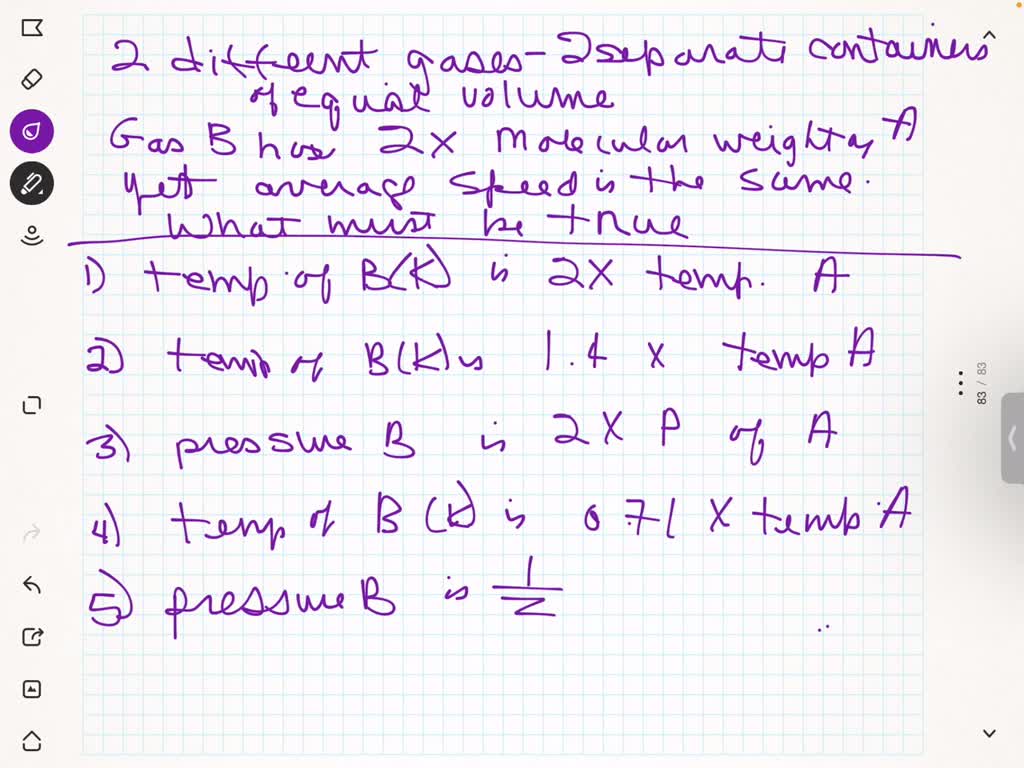 2 different gases - 2 separate containers
of equal volume
Gas B has 2X molecular weight of A
yet average speed is the same.
What must be true
1) temp of B(K) is 2X temp. A
2) temp of B(K) is 1.4 X temp A
3) pressure B is 2X P of A
4) temp of B(K) is 0.71 X temp A
5) pressure B is 1/2
83 / 83